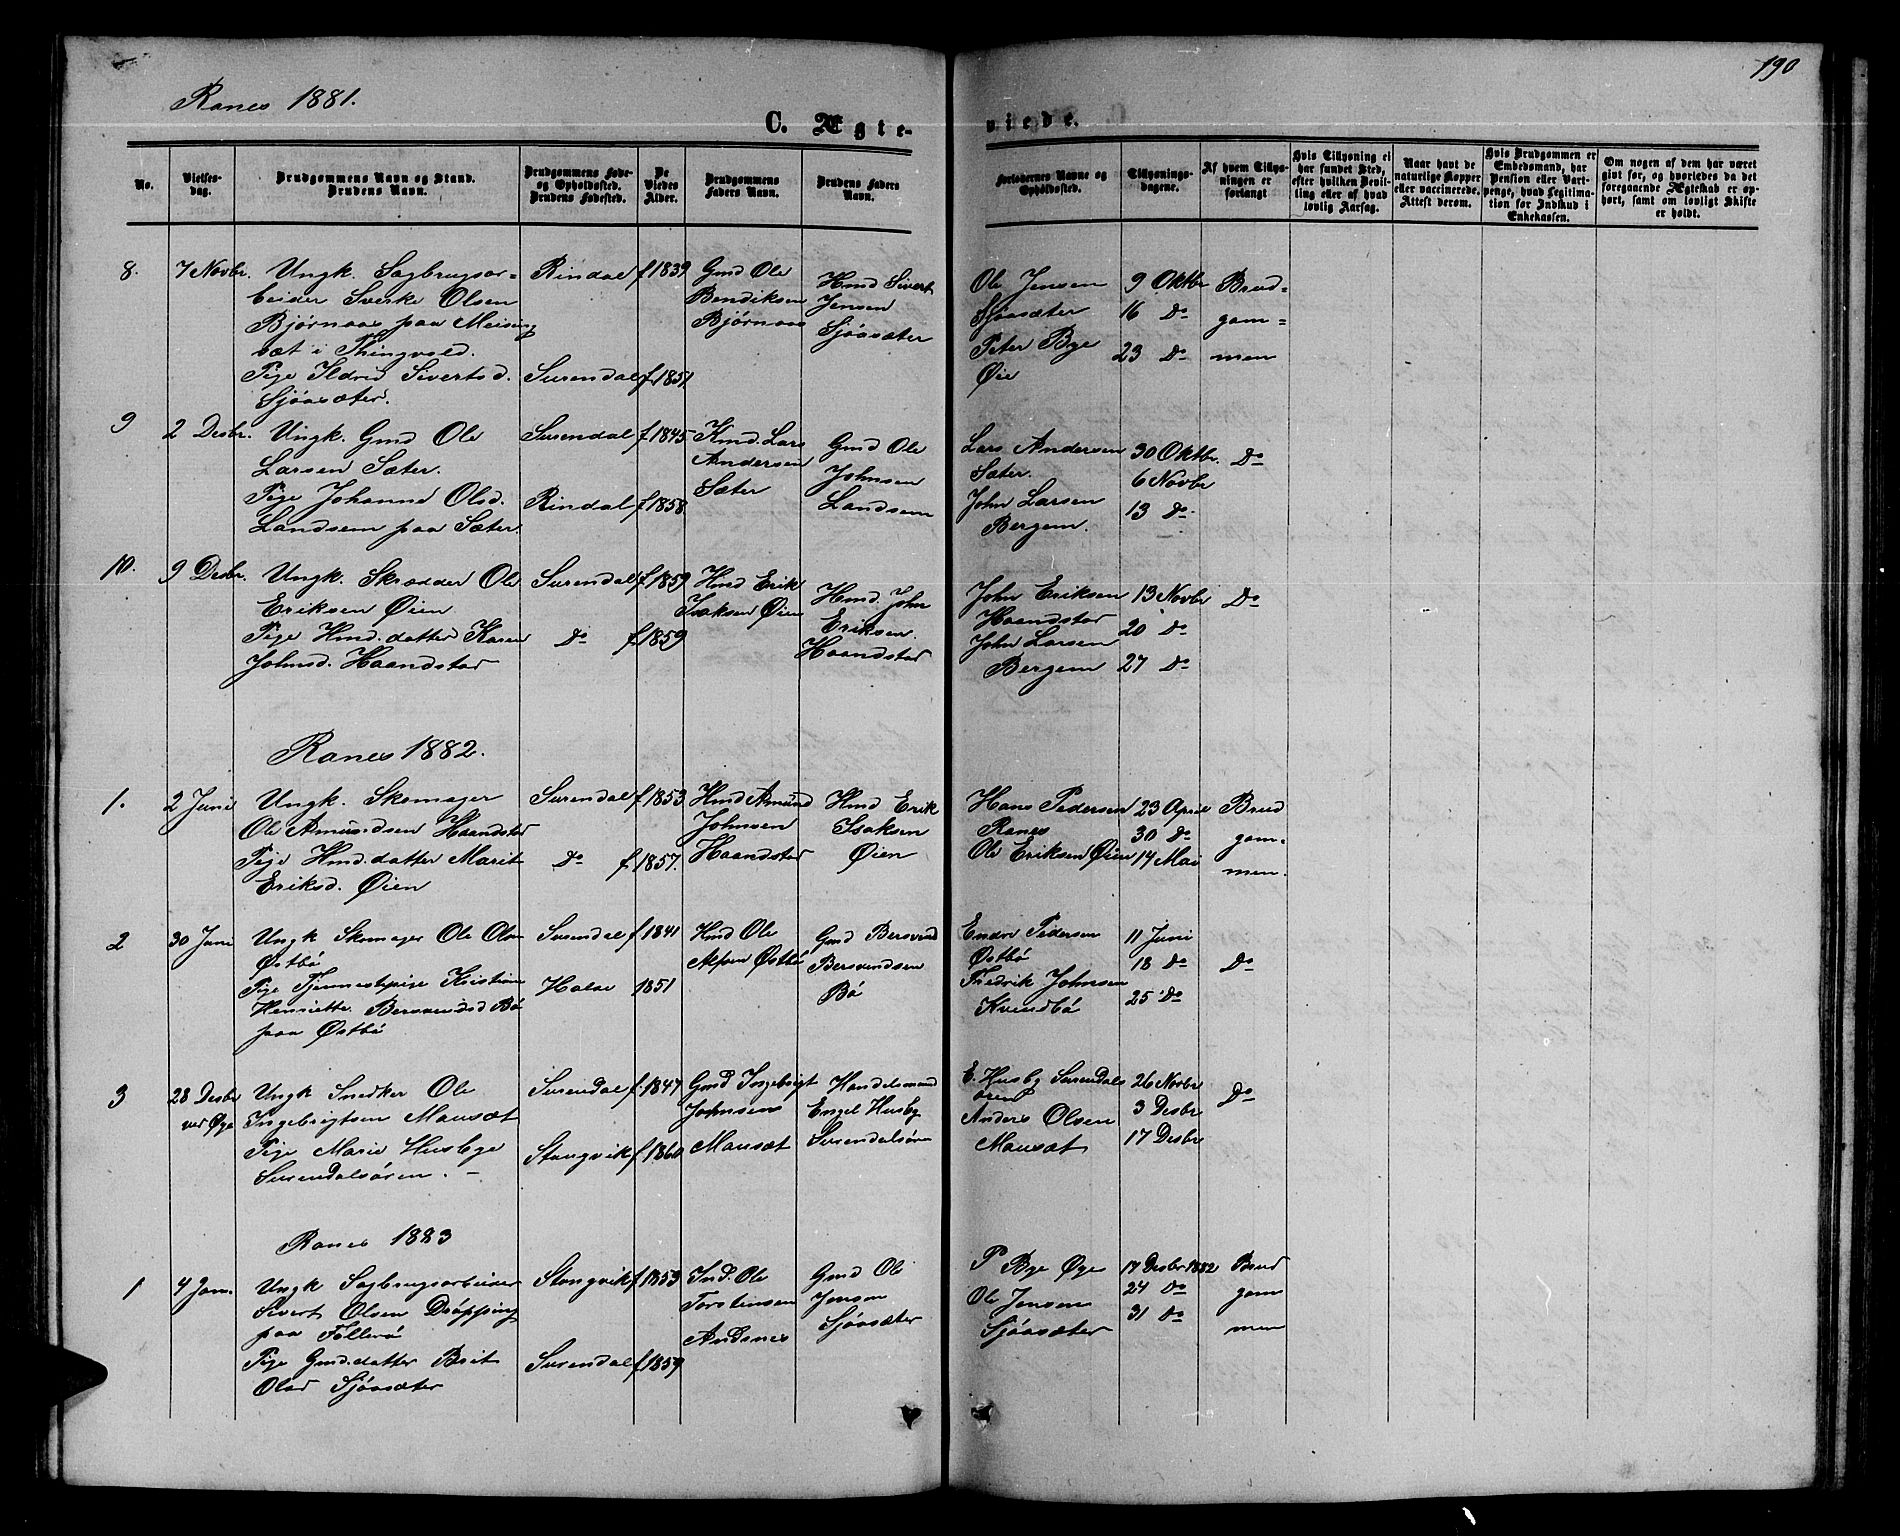 190
Ranes 1881.
C. Ægte-
viede.
No.
Vielses-
dag.
Brudgommens Navn og Stand.
Brudens Navn.
Brudgommens Føde-
og Opholdssted.
Brudens Fødested.
De
Viedes
Alder.
Brudgommens
Faders Navn.
Brudens Faders
Navn.
Forlovernes Navne og
Opholdssted.
Tillysnings-
dagene.
Af hvem Tillys-
ningen er
forlangt
Hvis Tillysning ei
har fundet Sted,
efter hvilken Bevil-
ling eller af hvad
lovlig Aarsag.
Naar havt de
naturlige Kopper
eller vaccinerede.
Attest derom.
Hvis Brudgommen er
Embedsmand, har
Pension eller Vart-
penge, hvad Legitima-
tion for Indskud i
Enkekassen.
Om nogen af dem har været
gift før, og hvorledes da det
foregaaende Ægteskab er op-
hørt, samt om lovligt Skifte
er holdt.
8.
7 Novbr.
Ungk. Sagbrugsar-
beider Sverke Olsen
Bjørnaas paa Meising
sæt i Thingvold.
Pige Ildrid Sivertsd.
Sjøasæter.
Rindal
Surendal
f 1839
f 1851.
Gmd Ole
Bendiksen
Bjørnaas
Hmd Sivert
Jensen
Sjøasæter
Ole Jensen
Sjøasæter
Peter Bye
Øie
9 Oktbr
16 Do
23 Do
Brud-
gom-
men
9
2 Desbr.
Ungk. Gmd Ole
Larsen Sæter.
Pige Johanne Olsd.
Landsem paa Sæter.
Surendal
Rindal
f 1845.
f 1858.
Kmd. Lars
Andersen
Sæter
Gmd Ole
Johnsen
Landsem
Lars Andersen
Sæter.
John Larsen
Bergem.
30 Oktbr.
6 Novbr
13 Do
Do
10.
9 Desbr.
Ungk. Skrædder Ole
Eriksen Øien
Pige Hmd.datter Karen
Johnsd. Haandstad
Surendal
Do
f 1859
f 1859
Hmd Erik
Isaksen Øien
Hmd. John
Eriksen.
Haandstad
John Eriksen
Haandstad
John Larsen
Bergem
13 Novbr
20 Do
27 Do
Do
Ranes 1882.
1.
2 Juni
Ungk. Skomager
Ole Amundsen Haandstad
Pige Hmd.datter Marit
Eriksd. Øien
Surendal
Do
f 1853.
f 1857.
Hmd Amund
Johnsen
Haandstad
Hmd Erik
Isaksen
Øien
Hans Pedersen
Ranes
Ole Eriksen Øien
23 April
30 Do
14 Mai
Brud
gom-
men.
2
30 Juni
Ungk Skomager Ole Olsen
Østbø
Pige Tjenestepige Kristine
Henriette Bersvendsd Bø
paa Østbø
Surendal
Halse
f 1841
1851
Hmd Ole
Østbø
Gmd Bersvend
Bersvendsen
Bø
Endre Pedersen
Østbø
Fredrik Johnsen
Kvendbø
11 Juni
18 Do
25 Do
Do
3
28 Desbr
ved Øye
Ungk Snedker Ole
Ingebrigtsen Mausæt
Pige Marie Husbye
Surendalsøren. -
Surendal
Stangvik
f. 1847
f 1860
Gmd Ingebrigt
Johnsens
Mausæt
Handelsmand
Engel Husby
Surendalsøren
E. Husby Surendals
øren
Anders Olsen
Mausæt
26 Novbr
3 Desbr
17 Desbr
Do
Ranes 1883
1
4 Jan.
Ungk Sagbrugsarbeider
Sivert Olsen Drøpping
paa Follerø
Pige Gmd.datter Brit
Olsd Sjøasæter
Stangvik
Surendal
f 1853
f 1859
Ind. Ole
Torstensen
Andsnes
Gmd Ole
Jensen
Sjøasæter
P Bye Øye
Ole Jensen
Sjøasæter
17 Desbr 1882
24 Do
31 Do
Brud
gom
men